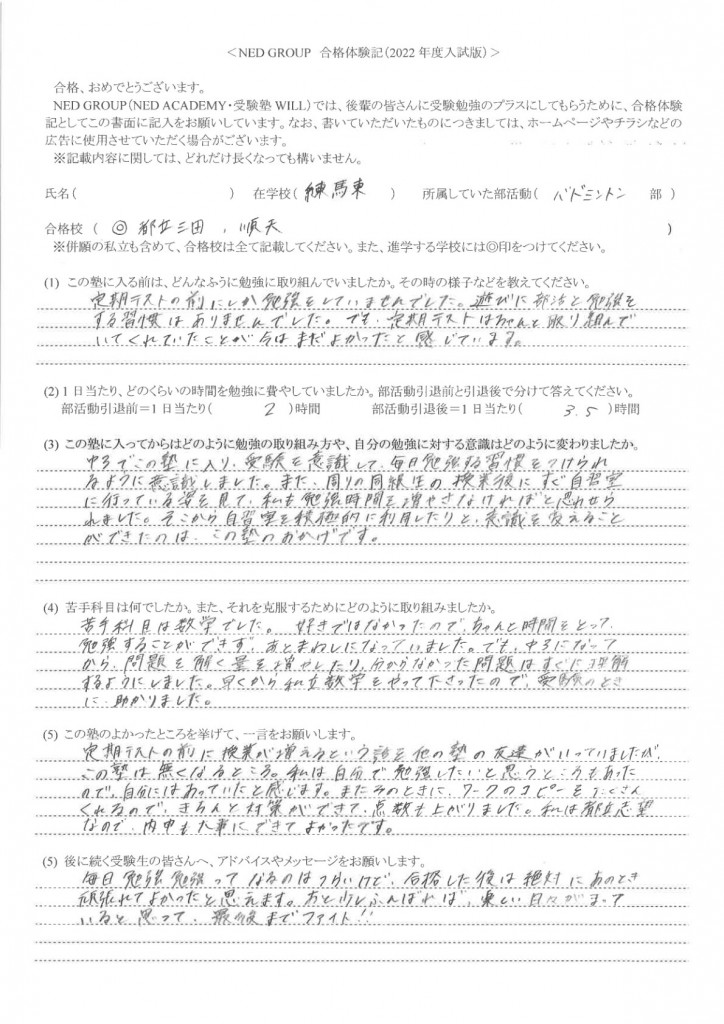 ＜NED GROUP 合格体験記（2022 年度入試版）＞
合格、おめでとうございます。
NED GROUP（NED ACADEMY・受験塾 WILL）では、後輩の皆さんに受験勉強のプラスにしてもらうために、合格体験
記としてこの書面に記入をお願いしています。なお、書いていただいたものにつきましては、ホームページやチラシなどの
広告に使用させていただく場合がございます。
※記載内容に関しては、どれだけ長くなっても構いません。
氏名（ ） 在学校（ 練馬東 ） 所属していた部活動（ バドミントン 部 ）
合格校 （ ◎ 都立三田 , 順天 ）
※併願の私立も含めて、合格校は全て記載してください。また、進学する学校には◎印をつけてください。
(1) この塾に入る前は、どんなふうに勉強に取り組んでいましたか。その時の様子などを教えてください。
定期テストの前にしか勉強をしていませんでした。遊びに部活と勉強を
する習慣はありませんでした。でも、定期テストはちゃんと取り組んで
いてくれていたことが今はまだよかったと感じています。
(2) 1 日当たり、どのくらいの時間を勉強に費やしていましたか。部活動引退前と引退後で分けて答えてください。
部活動引退前＝1 日当たり（ 2 ）時間 部活動引退後＝1 日当たり（ 3.5 ）時間
(3) この塾に入ってからはどのように勉強の取り組み方や、自分の勉強に対する意識はどのように変わりましたか。
中3でこの塾に入り、受験を意識して、毎日勉強する習慣をつけられ
るように意識しました。また、周りの同級生の授業後にすぐ自習室
に行っている姿を見て、私も勉強時間を増やさなければと思わせら
れました。そこから自習室を積極的に利用したりと、意識を変えること
ができたのは、この塾のおかげです。
(4) 苦手科目は何でしたか。また、それを克服するためにどのように取り組みましたか。
苦手科目は数学でした。 好きではなかったので、ちゃんと時間をとって、
勉強することができず、あとまわしになっていました。でも、中3になって
から、問題を解く量を増やしたり、分からなかった問題はすぐに理解
するようにしました。早くから私立数学をやって下さったので、受験のとき
に、助かりました。
(5) この塾のよかったところを挙げて、一言をお願いします。
定期テストの前に授業が増えるという話を他の塾の友達がいっていましたが、
この塾は無くなるところ。私は自分で勉強したいと思うところもあった
ので、自分にはあっていたと感じます。またそのときに、ワークのコピーをたくさん
くれるので、きちんと対策ができて、点数も上がりました。私は都立志望
なので、内申も大事にできてよかったです。
(5) 後に続く受験生の皆さんへ、アドバイスやメッセージをお願いします。
毎日勉強勉強ってなるのはつらいけど、合格した後は絶対にあのとき
頑張れてよかったと思えます。あと少しふんばれば、楽しい日々がまって
いると思って、最後までファイト!!